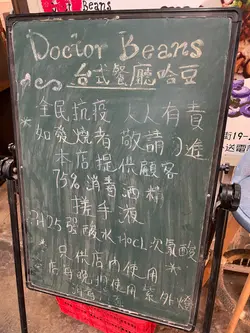 Beans
Doctor Beans
台式餐廳哈豆
全民抗疫 人人有責
如發燒者 敬請
本店提供顧客
75% 消毒酒精
搓手液
HOCl 次氯酸
只供店內使用
店每晚 使用紫外燈
街19-2
送電